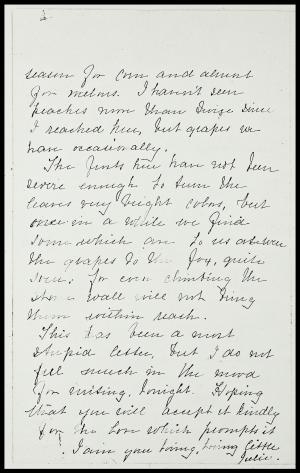 season for corn and almost
for melons. I haven't seen
peaches more than twice since
I reached here, but grapes we
have occasionally.
The frosts here have not been
severe enough to turn the
leaves very bright colors, but
once in a while we find
some which are to us as were
the grapes to the fox, quite
sour; for even climbing the
stone wall will not bring
them within reach.
This has been a most
stupid letter, but I do not
feel much in the mood
for writing, tonight. Hoping
that you will accept it kindly
for the love which prompts it
I am your loving, loving little
Julie.